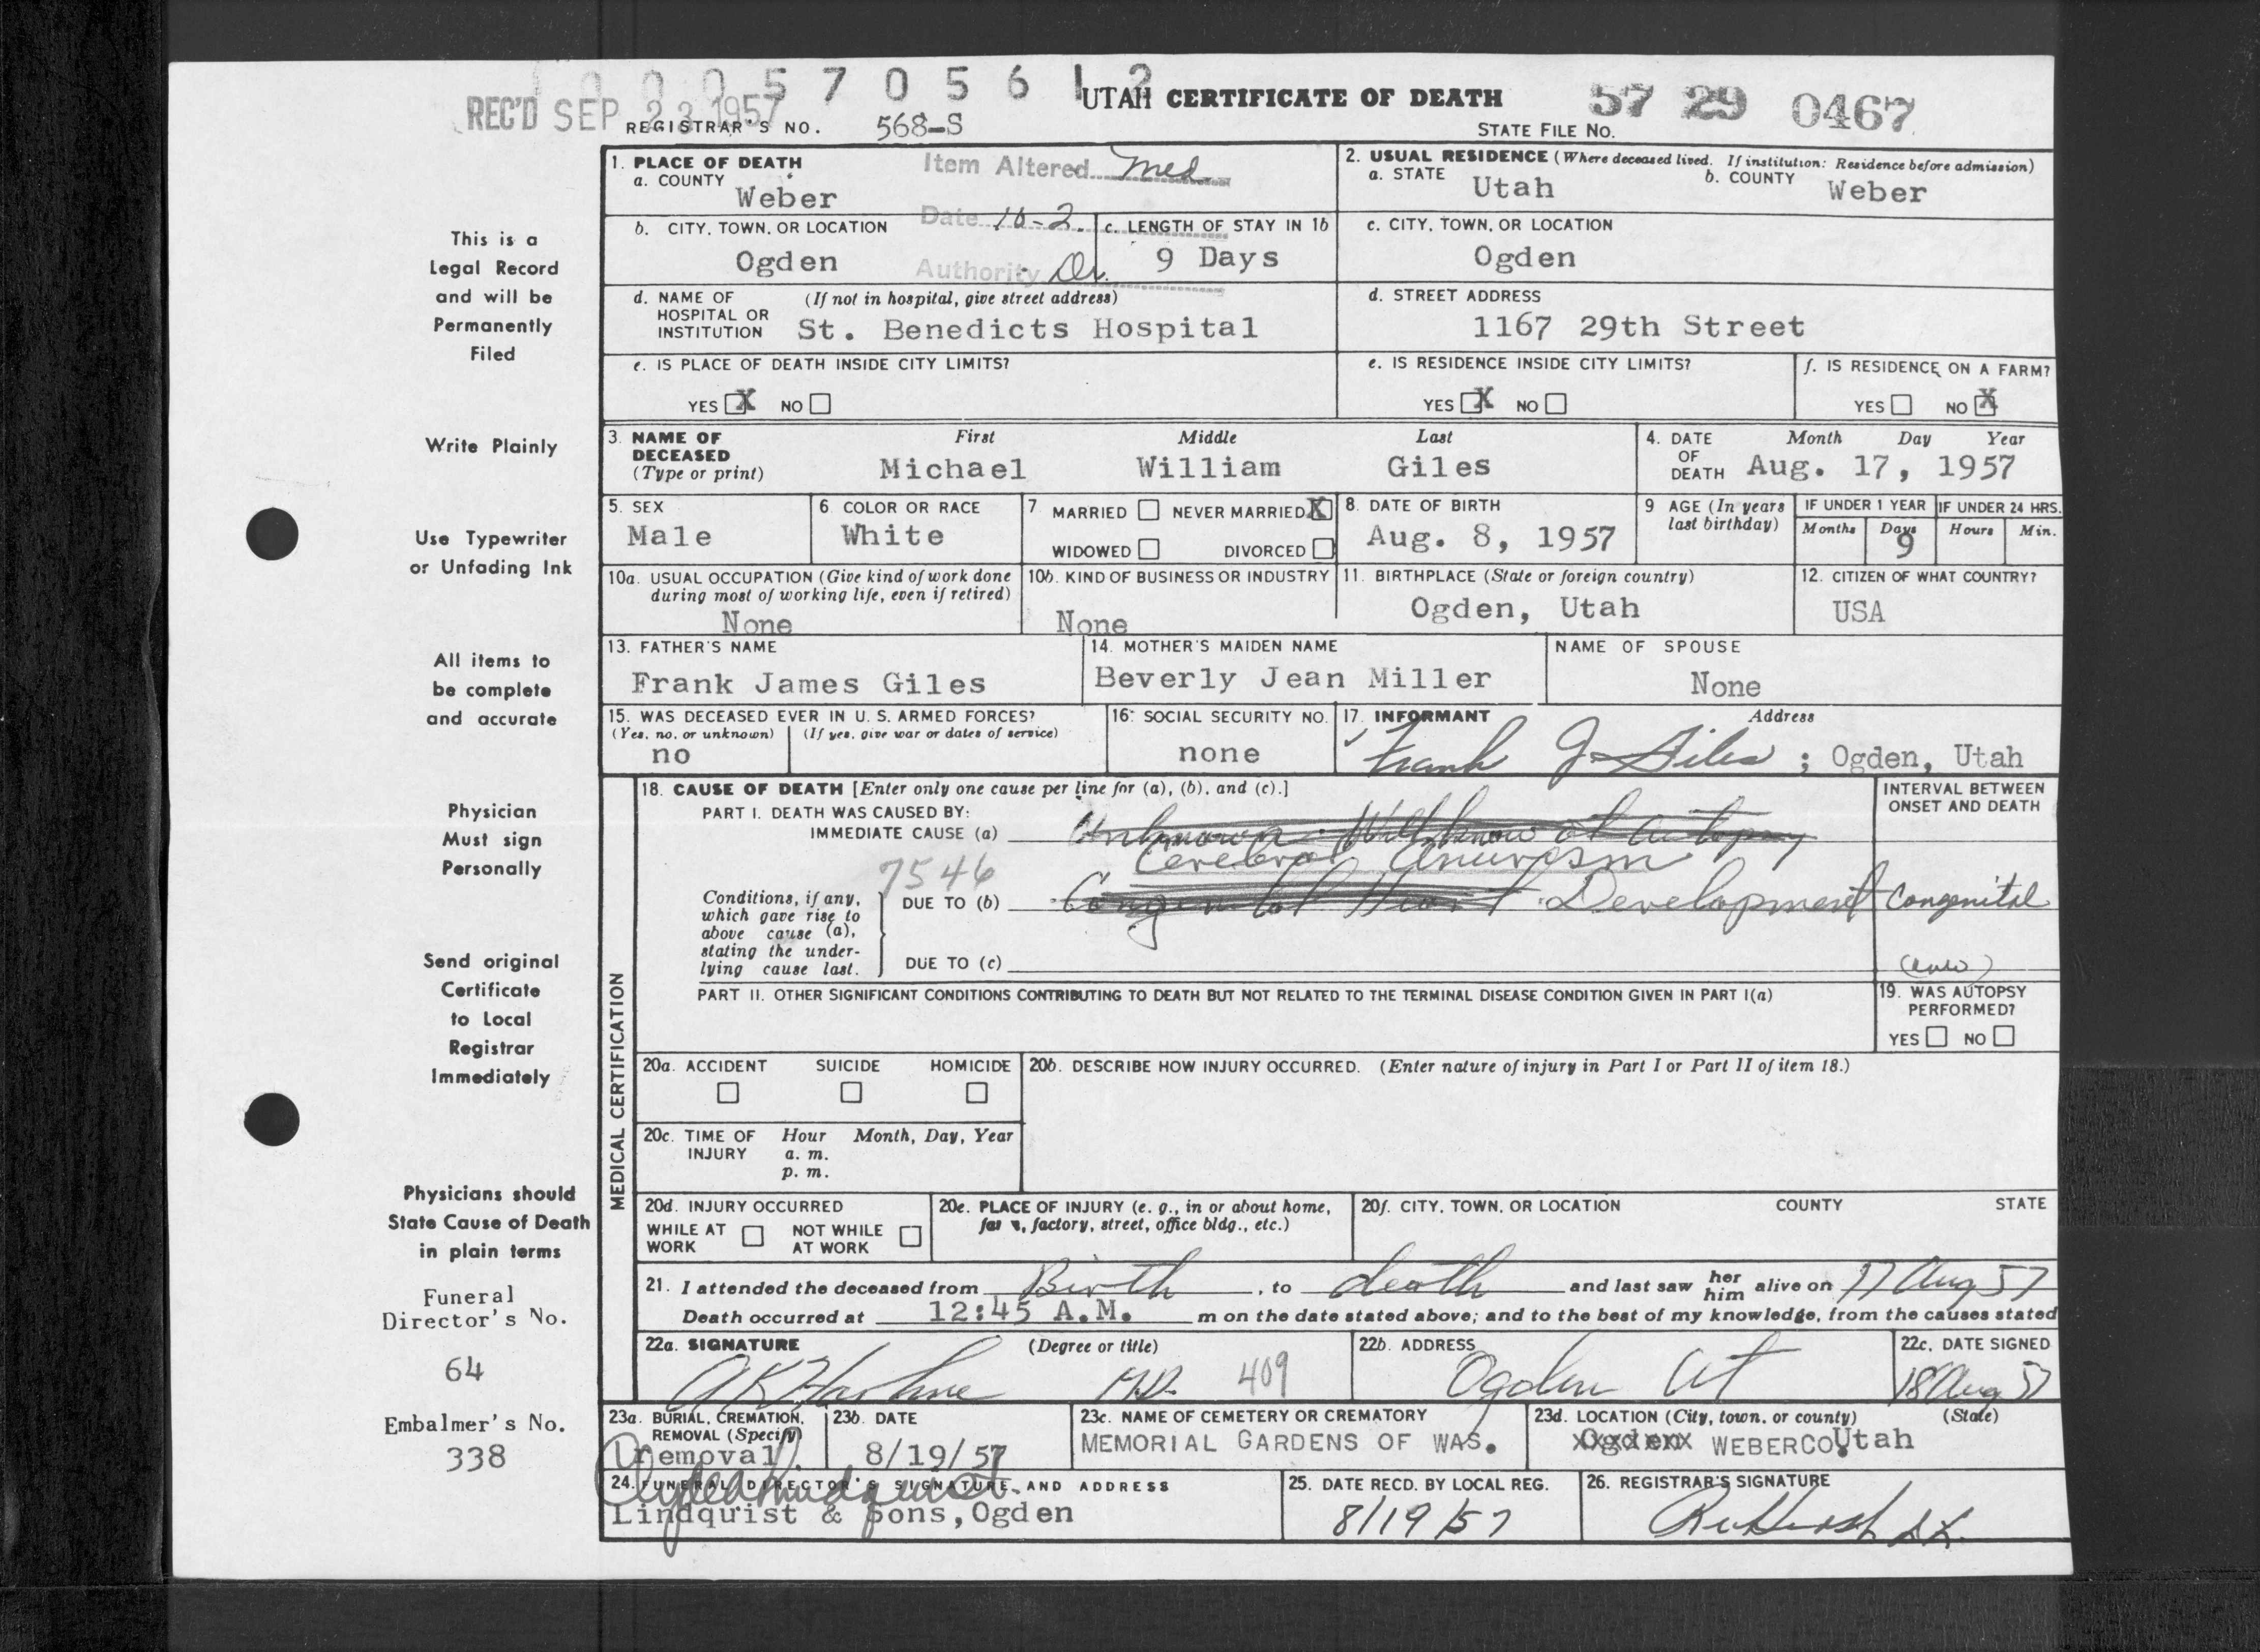 1 0 0 0 5 7 0 5 6 1 2
REC'D SEP 23 1957
UTAH CERTIFICATE OF DEATH
57 29 0467
REGISTRAR'S NO. 568-S
STATE FILE No.
1. PLACE OF DEATH
a. COUNTY
Weber
Item Altered Med
Date 10-2.
Authority Dr.
2. USUAL RESIDENCE (Where deceased lived. If institution: Residence before admission)
a. STATE Utah b. COUNTY Weber
b. CITY, TOWN, OR LOCATION
Ogden
c. LENGTH OF STAY IN 1b
9 Days
c. CITY, TOWN, OR LOCATION
Ogden
d. NAME OF (If not in hospital, give street address)
HOSPITAL OR
INSTITUTION St. Benedicts Hospital
d. STREET ADDRESS
1167 29th Street
e. IS PLACE OF DEATH INSIDE CITY LIMITS?
YES X NO
e. IS RESIDENCE INSIDE CITY LIMITS?
YES X NO
f. IS RESIDENCE ON A FARM?
YES NO X
3. NAME OF DECEASED (Type or print)
First Middle Last
Michael William Giles
4. DATE OF DEATH Month Day Year
Aug. 17, 1957
5. SEX
Male
6 COLOR OR RACE
White
7 MARRIED NEVER MARRIED X
WIDOWED DIVORCED
8. DATE OF BIRTH
Aug. 8, 1957
9 AGE (In years last birthday)
IF UNDER 1 YEAR
Months Days
9
IF UNDER 24 HRS.
Hours Min.
10a. USUAL OCCUPATION (Give kind of work done
during most of working life, even if retired)
None
10b. KIND OF BUSINESS OR INDUSTRY
None
11. BIRTHPLACE (State or foreign country)
Ogden, Utah
12. CITIZEN OF WHAT COUNTRY?
USA
13. FATHER'S NAME
Frank James Giles
14. MOTHER'S MAIDEN NAME
Beverly Jean Miller
NAME OF SPOUSE
None
15. WAS DECEASED EVER IN U. S. ARMED FORCES?
(Yes, no, or unknown) (If yes, give war or dates of service)
no
16. SOCIAL SECURITY NO.
none
17. INFORMANT Address
Frank J Giles ; Ogden, Utah
18. CAUSE OF DEATH [Enter only one cause per line for (a), (b), and (c).]
PART I. DEATH WAS CAUSED BY:
IMMEDIATE CAUSE (a) Unknown - Will know at autopsy
Cerebral Anurysm
7546
Conditions, if any,
which gave rise to
above cause (a),
stating the under-
lying cause last.
DUE TO (b) Congenital Heart Development
DUE TO (c)
INTERVAL BETWEEN
ONSET AND DEATH
Congenital
PART II. OTHER SIGNIFICANT CONDITIONS CONTRIBUTING TO DEATH BUT NOT RELATED TO THE TERMINAL DISEASE CONDITION GIVEN IN PART I(a)
19. WAS AUTOPSY
PERFORMED?
YES NO
MEDICAL CERTIFICATION
20a. ACCIDENT SUICIDE HOMICIDE
20b. DESCRIBE HOW INJURY OCCURRED. (Enter nature of injury in Part I or Part II of item 18.)
20c. TIME OF Hour Month, Day, Year
INJURY a. m.
p. m.
20d. INJURY OCCURRED
WHILE AT WORK NOT WHILE AT WORK
20e. PLACE OF INJURY (e. g., in or about home,
factory, street, office bldg., etc.)
20f. CITY, TOWN, OR LOCATION COUNTY STATE
21. I attended the deceased from Birth, to death and last saw her him alive on 17 Aug 57
Death occurred at 12:45 A.M. m on the date stated above; and to the best of my knowledge, from the causes stated
22a. SIGNATURE (Degree or title)
M.D. 409
22b. ADDRESS
Ogden Ut
22c. DATE SIGNED
18 Aug 57
23a. BURIAL, CREMATION,
REMOVAL (Specify)
removal
23b. DATE
8/19/57
23c. NAME OF CEMETERY OR CREMATORY
MEMORIAL GARDENS OF WAS.
23d. LOCATION (City, town, or county) (State)
Ogden WEBERCO. Utah
24. FUNERAL DIRECTOR'S SIGNATURE AND ADDRESS
Lindquist & Sons, Ogden
25. DATE RECD. BY LOCAL REG.
8/19/57
26. REGISTRAR'S SIGNATURE
This is a
Legal Record
and will be
Permanently
Filed
Write Plainly
Use Typewriter
or Unfading Ink
All items to
be complete
and accurate
Physician
Must sign
Personally
Send original
Certificate
to Local
Registrar
Immediately
Physicians should
State Cause of Death
in plain terms
Funeral
Director's No.
64
Embalmer's No.
338